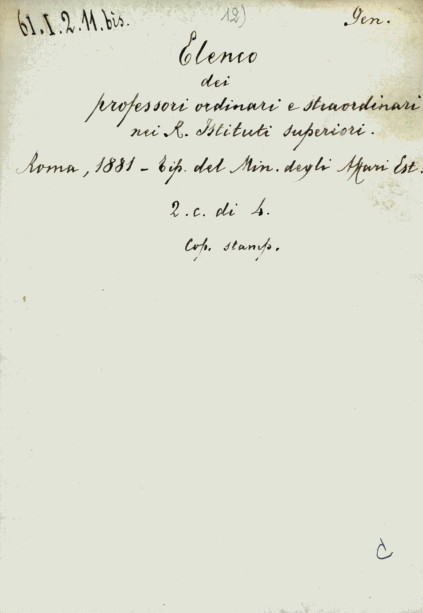 61.I.2.11.bis. 12) Gen.
Elenco
dei
professori ordinari e straordinari
nei R. Istituti superiori.
Roma, 1881 - Tip. del Min. degli Affari Est.
2. c. di 4.
Cop. stamp.
C